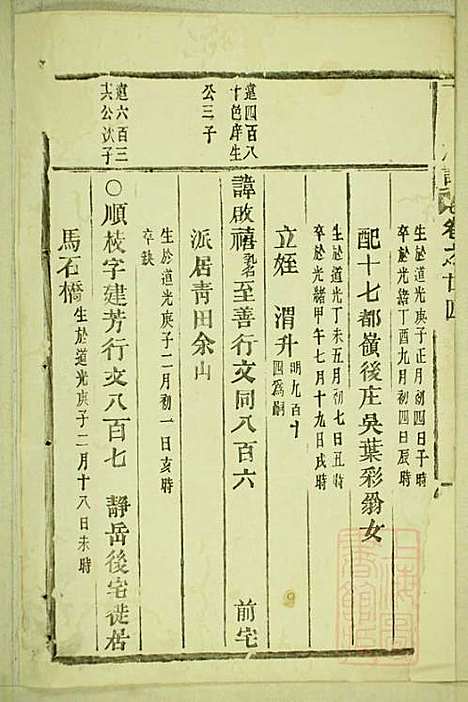 卷之廿四
生於道光庚子正月初四日午時
卒於光緒丁酉九月初四日辰時
配十七都嶺後庄吳葉彩翁女
生於道光丁未五月初七日丑時
卒於光緒甲午七月十九日戌時
立姪 渭升 明九百十四爲嗣
遠四百八十邑庠生公三子
諱啟禧 名至善行文同八百六 前宅
派居青田余山
生於道光庚子二月初一日亥時
卒缺
遠六百三其公次子
○順棱字建芳行文八百七 靜岳後宅徙居
馬石橋 生於道光庚子二月十八日未時